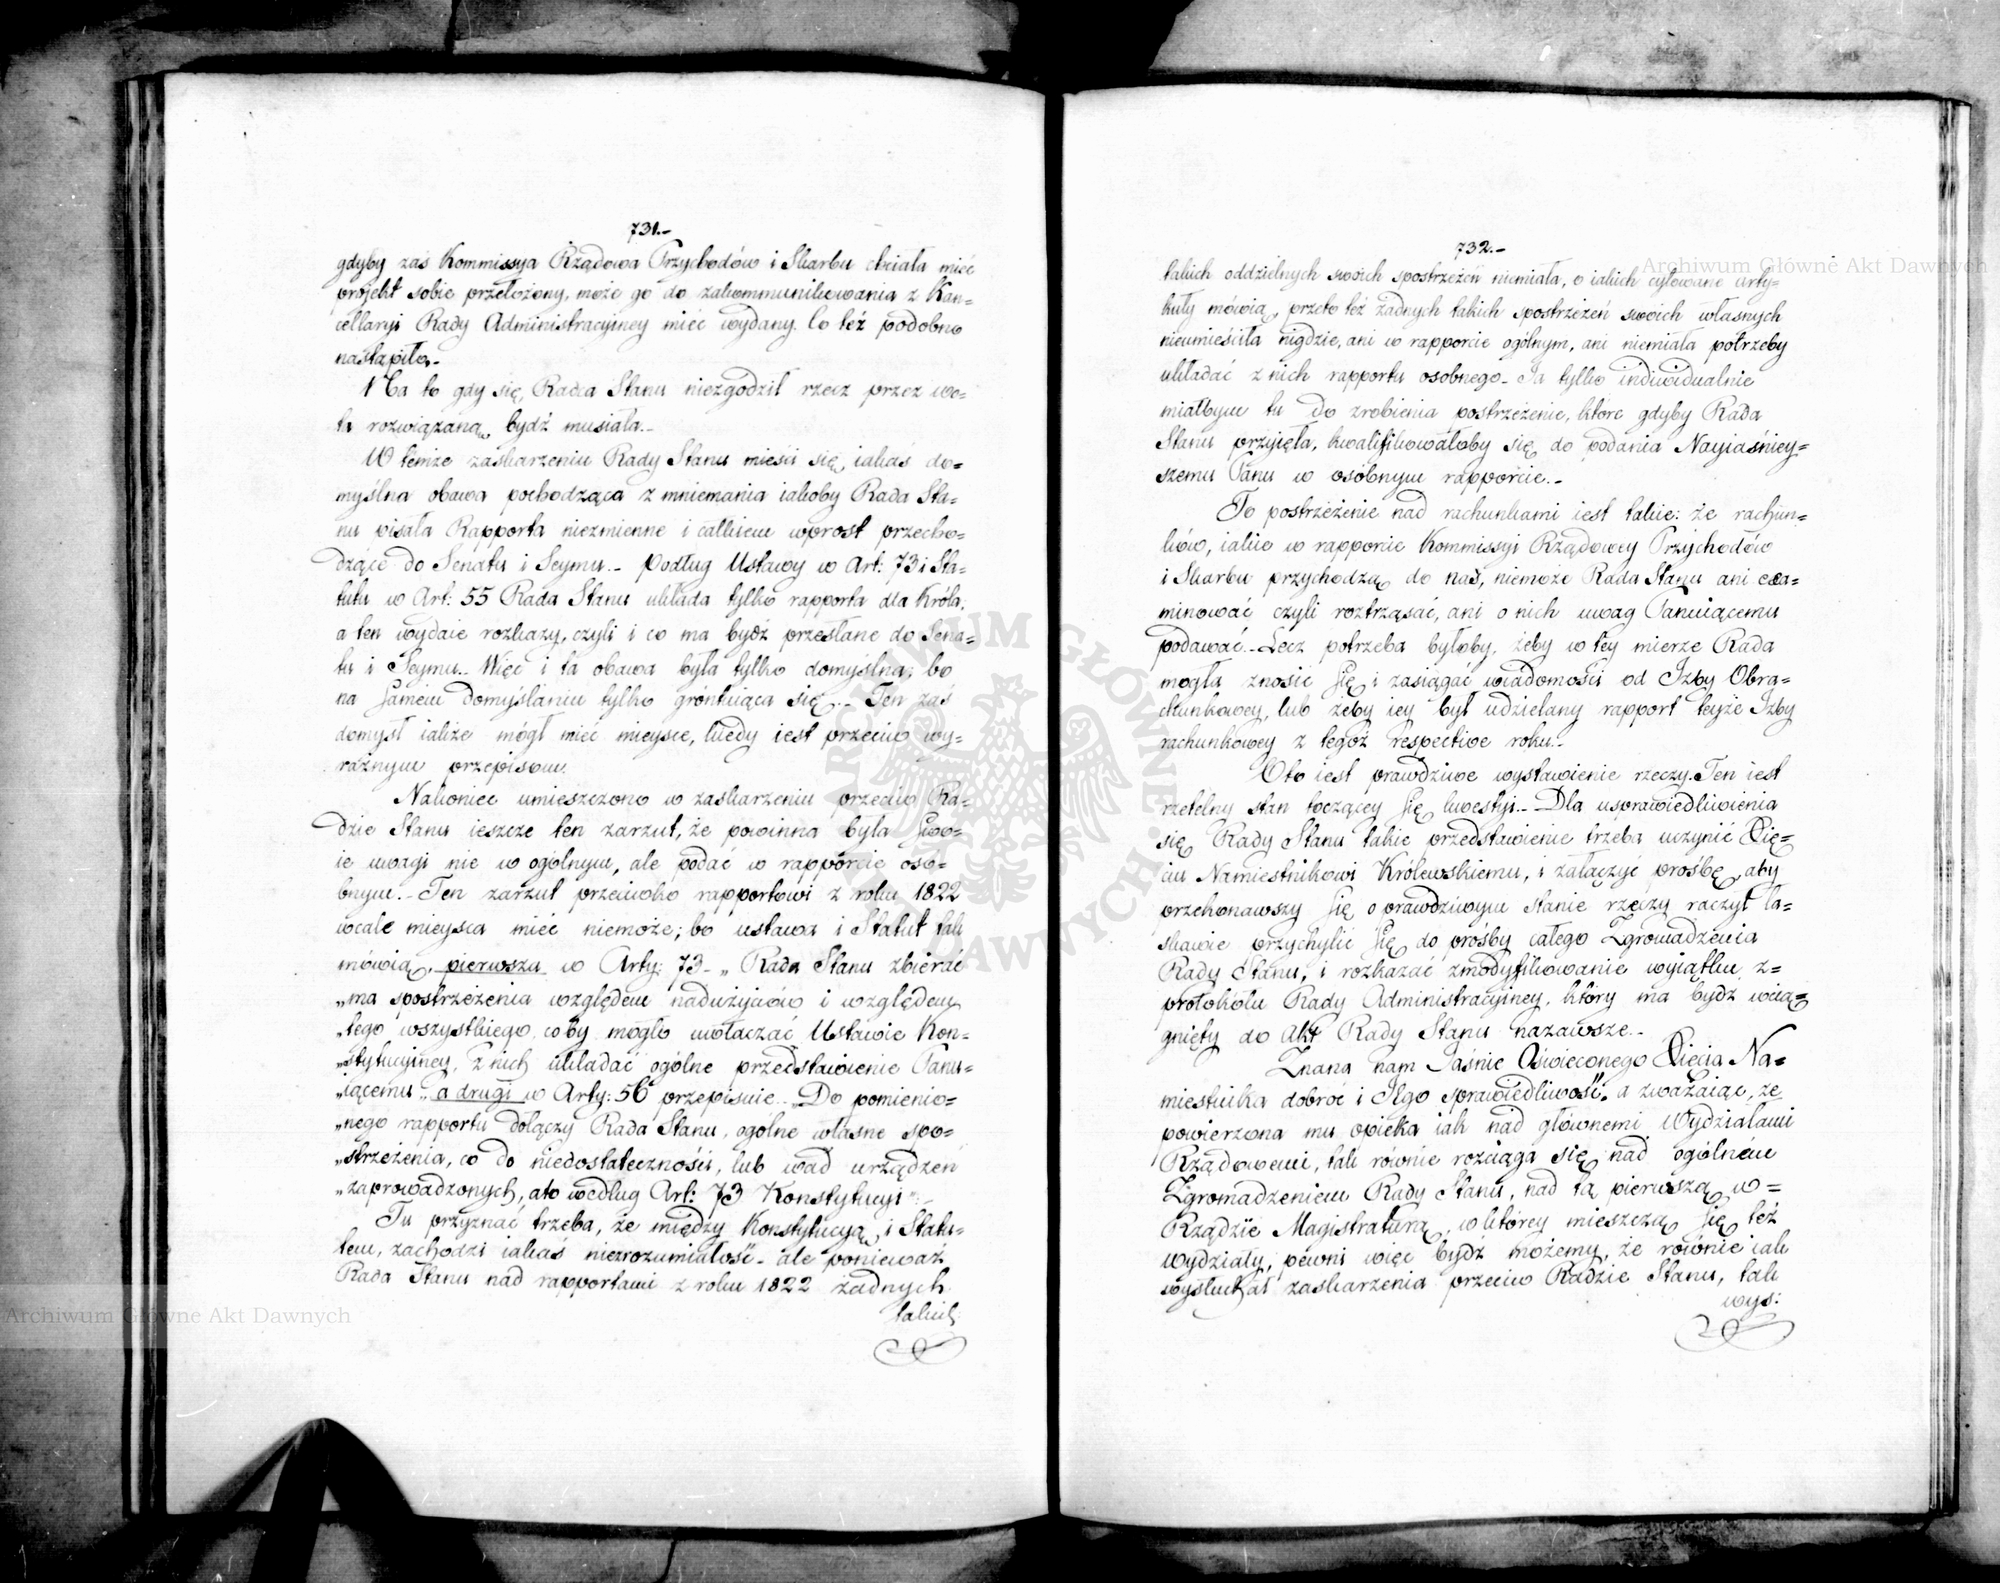 731.-
gdyby zaś Kommissya Rządowa Przychodów i Skarbu chciała mieć
projekt sobie przełożony, może go do zakommunikowania z Kan=
cellaryi Rady Administracyiney mieć wydany. Co też podobno
nastąpiło.-
Na to gdy się Radca Stanu niezgodził rzecz przez wo=
ta rozwiązaną bydź musiała.-
W temże zaskarzeniu Rady Stanu mieści się iakaś do=
myślna obawa pochodząca z mniemania iakoby Rada Sta=
nu pisała Rapporta niezmienne i całkiem wprost przecho=
dzące do Senatu i Seymu.- Podług Ustawy w Art: 73 i Sta=
tutu w Art: 55 Rada Stanu układa tylko rapporta dla Króla,
a ten wydaie rozkazy, czyli i co ma bydź przesłane do Sena=
tu i Seymu.- Więc i ta obawa była tylko domyślna; bo
na samem domyślaniu tylko gróntuiąca się.- Ten zaś
domysł iakże mógł mieć mieysce, kiedy iest przeciw wy=
raźnym przepisom.
Nakoniec umieszczono w zaskarzeniu przeciw Ra=
dzie Stanu ieszcze ten zarzut, że powinna była swo=
ie uwagi nie w ogólnym, ale podać w rapporcie osó=
bnym.- Ten zarzut przeciwko rapportowi z roku 1822
wcale mieysca mieć niemoże; bo ustawa i Statut tak
mówią, pierwsza w Arty: 73- „Rada Stanu zbierać
„ma spostrzeżenia względem nadużyciów i względem
„tego wszystkiego coby mogło uwłaczać Ustawie Kon=
„stytucyiney, z nich układać ogólne przedstawienie Panu=
„iącemu„ a drugi w Arty: 56 przepisuie.- „Do pomienio=
„nego rapportu dołączy Rada Stanu, ogólne własne spo=
„strzeżenia, co do niedostateczności, lub wad urządzeń
„zaprowadzonych, a to według Art: 73 Konstytucyi".-
Tu przyznać trzeba, że między Konstytucyą i Statu=
tem, zachodzi iakaś niezrozumiałość- ale ponieważ
Rada Stanu nad rapportami z roku 1822 żadnych
takich
732.-
takich oddzielnych swoich spostrzeżeń niemiała, o iakich cytowane arty=
kuły mówią, przeto też żadnych takich spostrzeżeń swoich własnych
nieumieściła nigdzie, ani w rapporcie ogólnym, ani niemiała potrzeby
układać z nich rapportu osobnego- Ja tylko indiwidualnie
miałbym tu do zrobienia postrzeżenie, które gdyby Rada
Stanu przyięła, kwalifikowałoby się do podania Nayiaśniey=
szemu Panu w osóbnym rapporcie.-
To postrzeżenie nad rachunkami iest takie: że rachun=
ków, iakie w rapporcie Kommissyi Rządowey Przychodów
i Skarbu przychodzą do nas, niemoże Rada Stanu ani exa=
minować czyli roztrząsać, ani o nich uwag Panuiącemu
podawać.- Lecz potrzeba byłoby, żeby w tey mierze Rada
mogła znosić się i zasiągać wiadomości od Izby Obra=
chunkowey, lub żeby iey był udzielany rapport teyże Izby
rachunkowey z tegoż respective roku.-
Oto iest prawdziwe wystawienie rzeczy. Ten iest
rzetelny stan toczącey się kwestyi.- Dla usprawiedliwienia
się Rady Stanu takie przedstawienie trzeba uczynić Xię=
ciu Namiestnikowi Królewskiemu, i załączyć prośbę, aby
przekonawszy się o prawdziwym stanie rzeczy raczył ła=
skawie przychylić się do prośby całego Zgromadzenia
Rady Stanu, i rozkazać zmodyfikowanie wyiątku z=
protokółu Rady Administracyiney, który ma bydź wcią=
gnięty do Akt Rady Stanu nazawsze.-
Znana nam Jaśnie Oświeconego Xięcia Na=
miestnika dobroć i Jego sprawiedliwość, a zważaiąc, że
powierzona mu opieka iak nad głównemi Wydziałami
Rządowemi, tak równie rozciąga się nad ogólném
Zgromadzeniem Rady Stanu, nad tą pierwszą w=
Rządzie Magistraturą, w którey mieszczą się też
wydziały, pewni więc bydź możemy, że równie iak
wysłuchał zaskarzenia przeciw Radzie Stanu, tak
wys:
Archiwum Główne Akt Dawnych
Archiwum Główne Akt Dawnych
ARCHIWUM GŁÓWNE AKT DAWNYCH